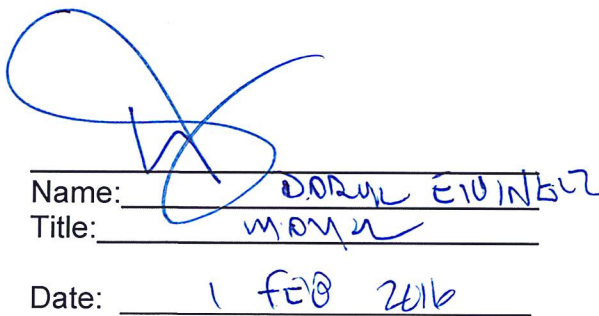 Name: DARYL EIDINGER
Title: MAYOR
Date: 1 FEB 2016